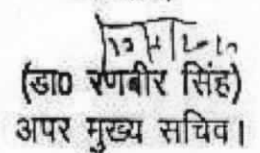 (डा0 रणबीर सिंह)
अपर मुख्य सचिव।